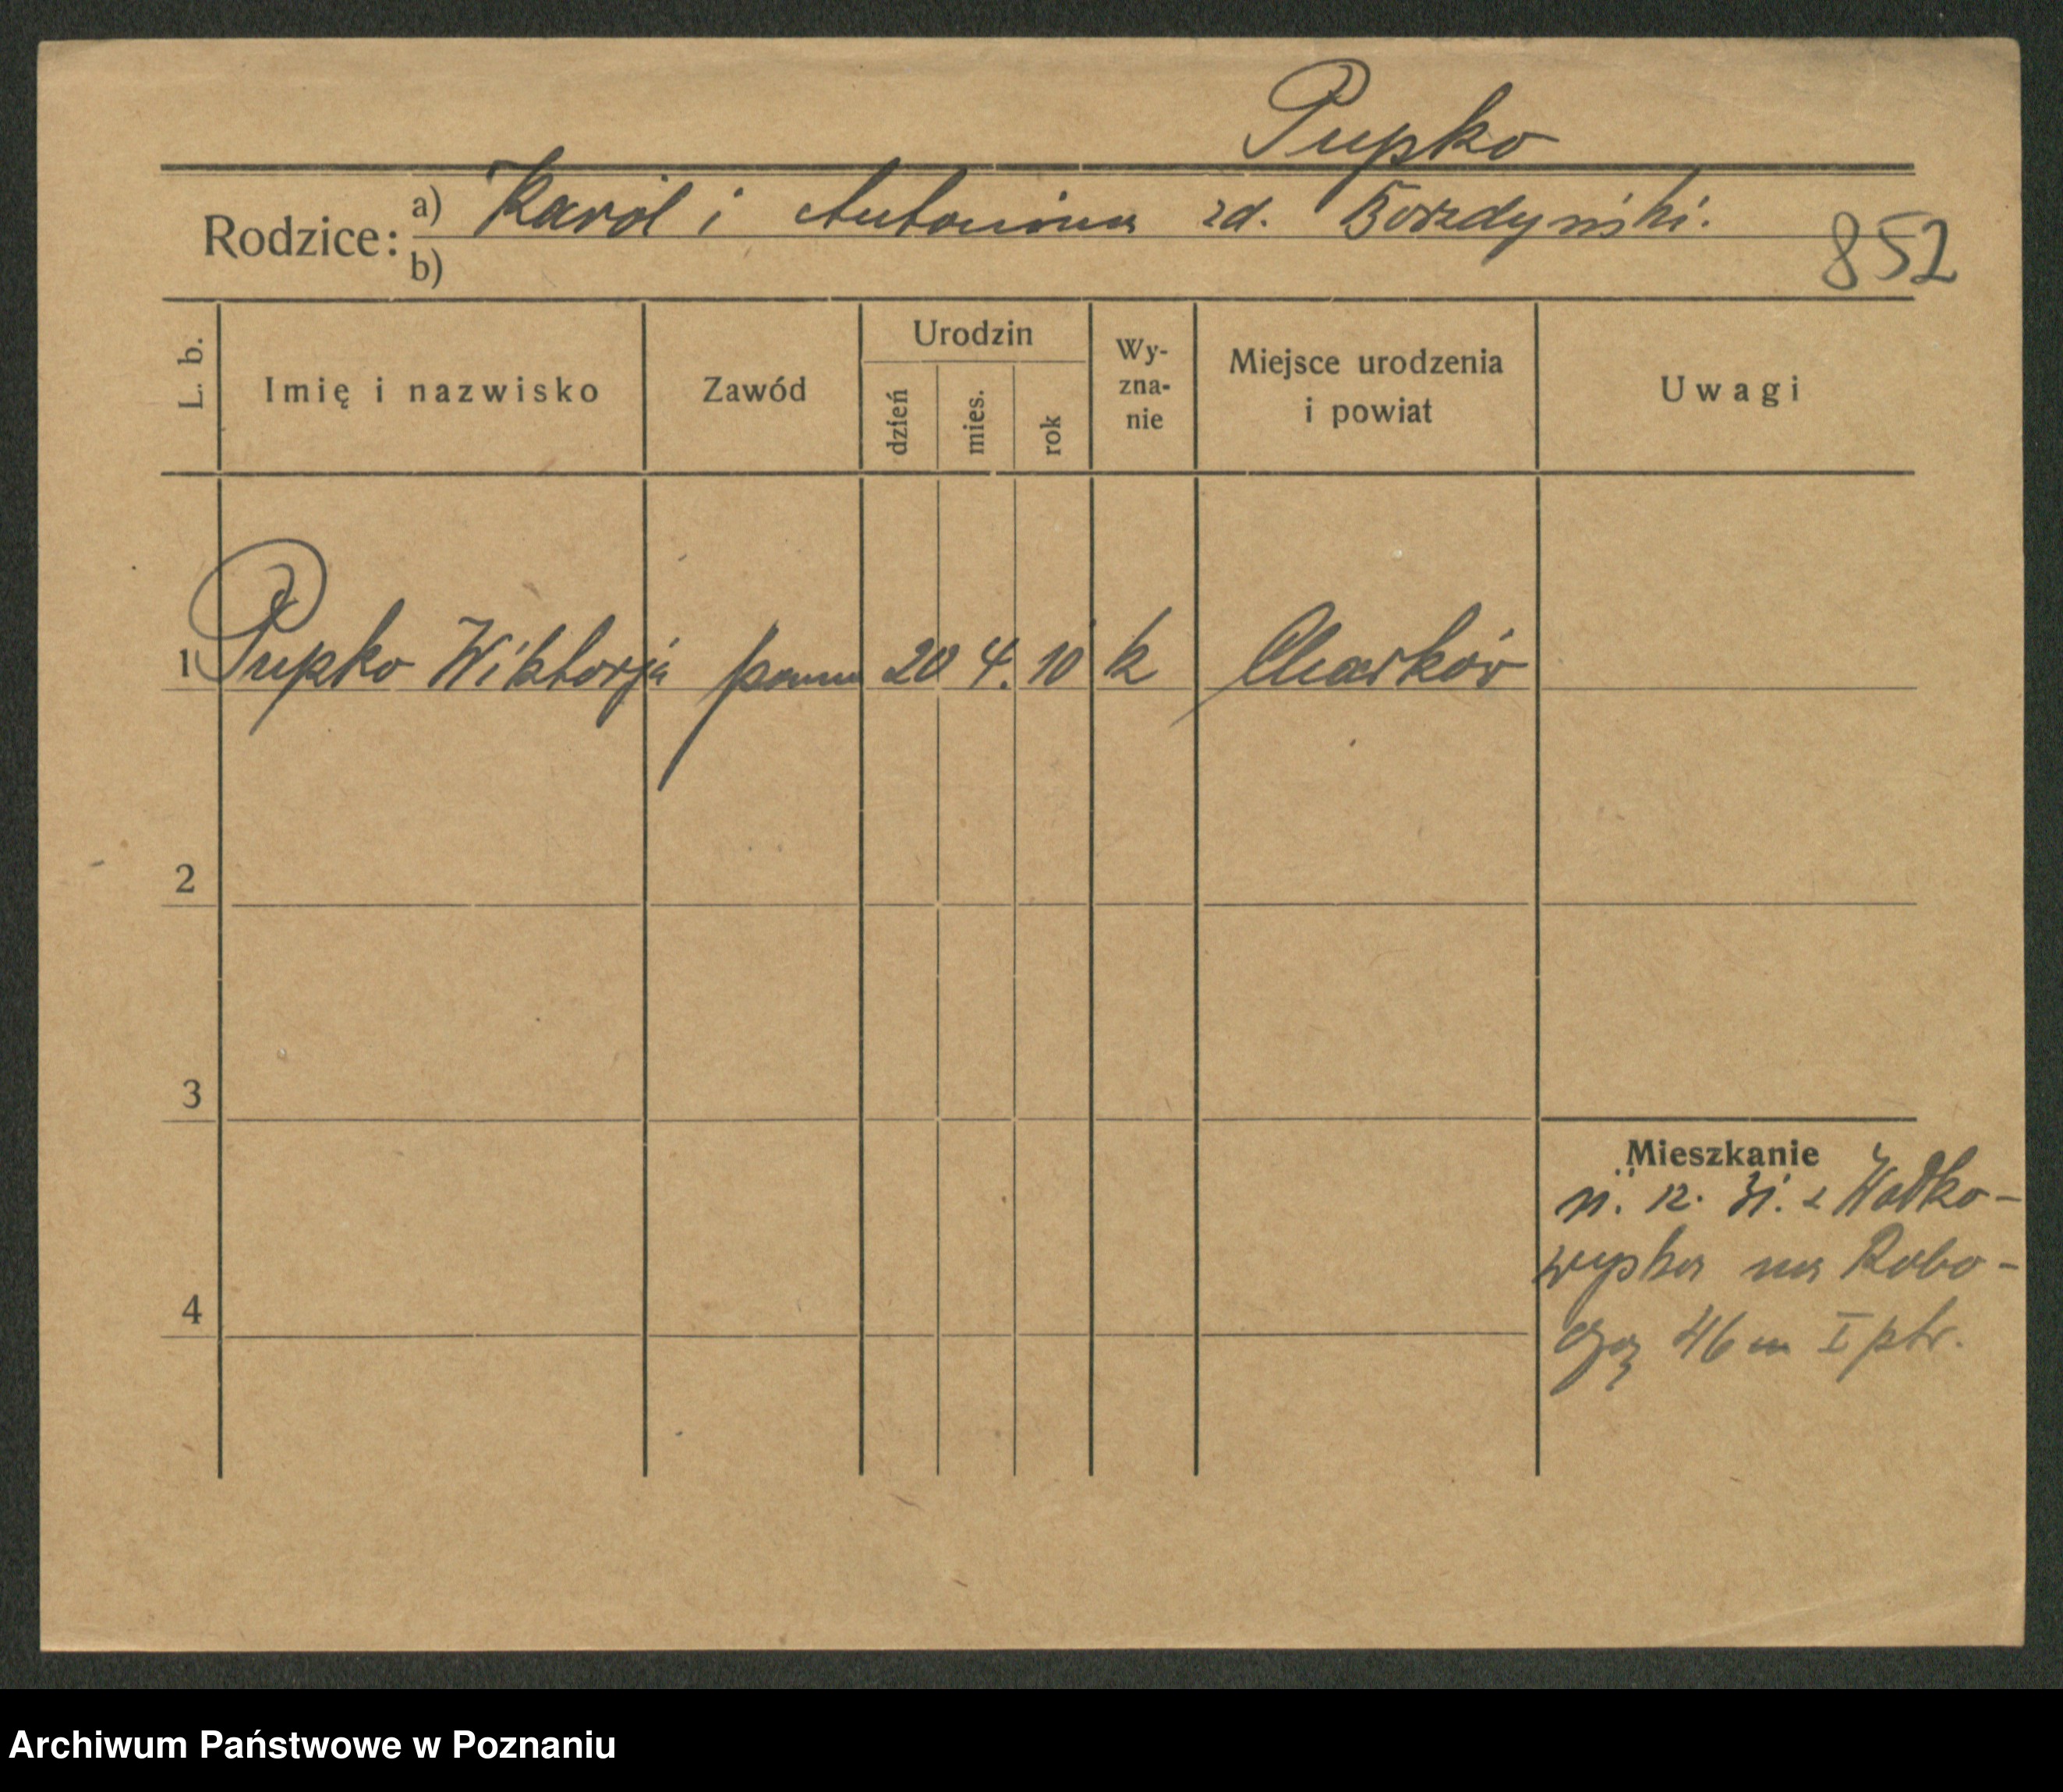 Pupko
Rodzice: a) Karol i Antonina zd.
b)
852
L. b.
Imię i nazwisko
Zawód
Urodzin
dzień
mies.
rok
Wy-
zna-
nie
Miejsce urodzenia
i powiat
Uwagi
1 Pupko Wiktorja panna 20 4. 10 k Charków
2
3
4
Mieszkanie
12. 31. z Wołko-
wyska na
46 m I ptr.
Archiwum Państwowe w Poznaniu